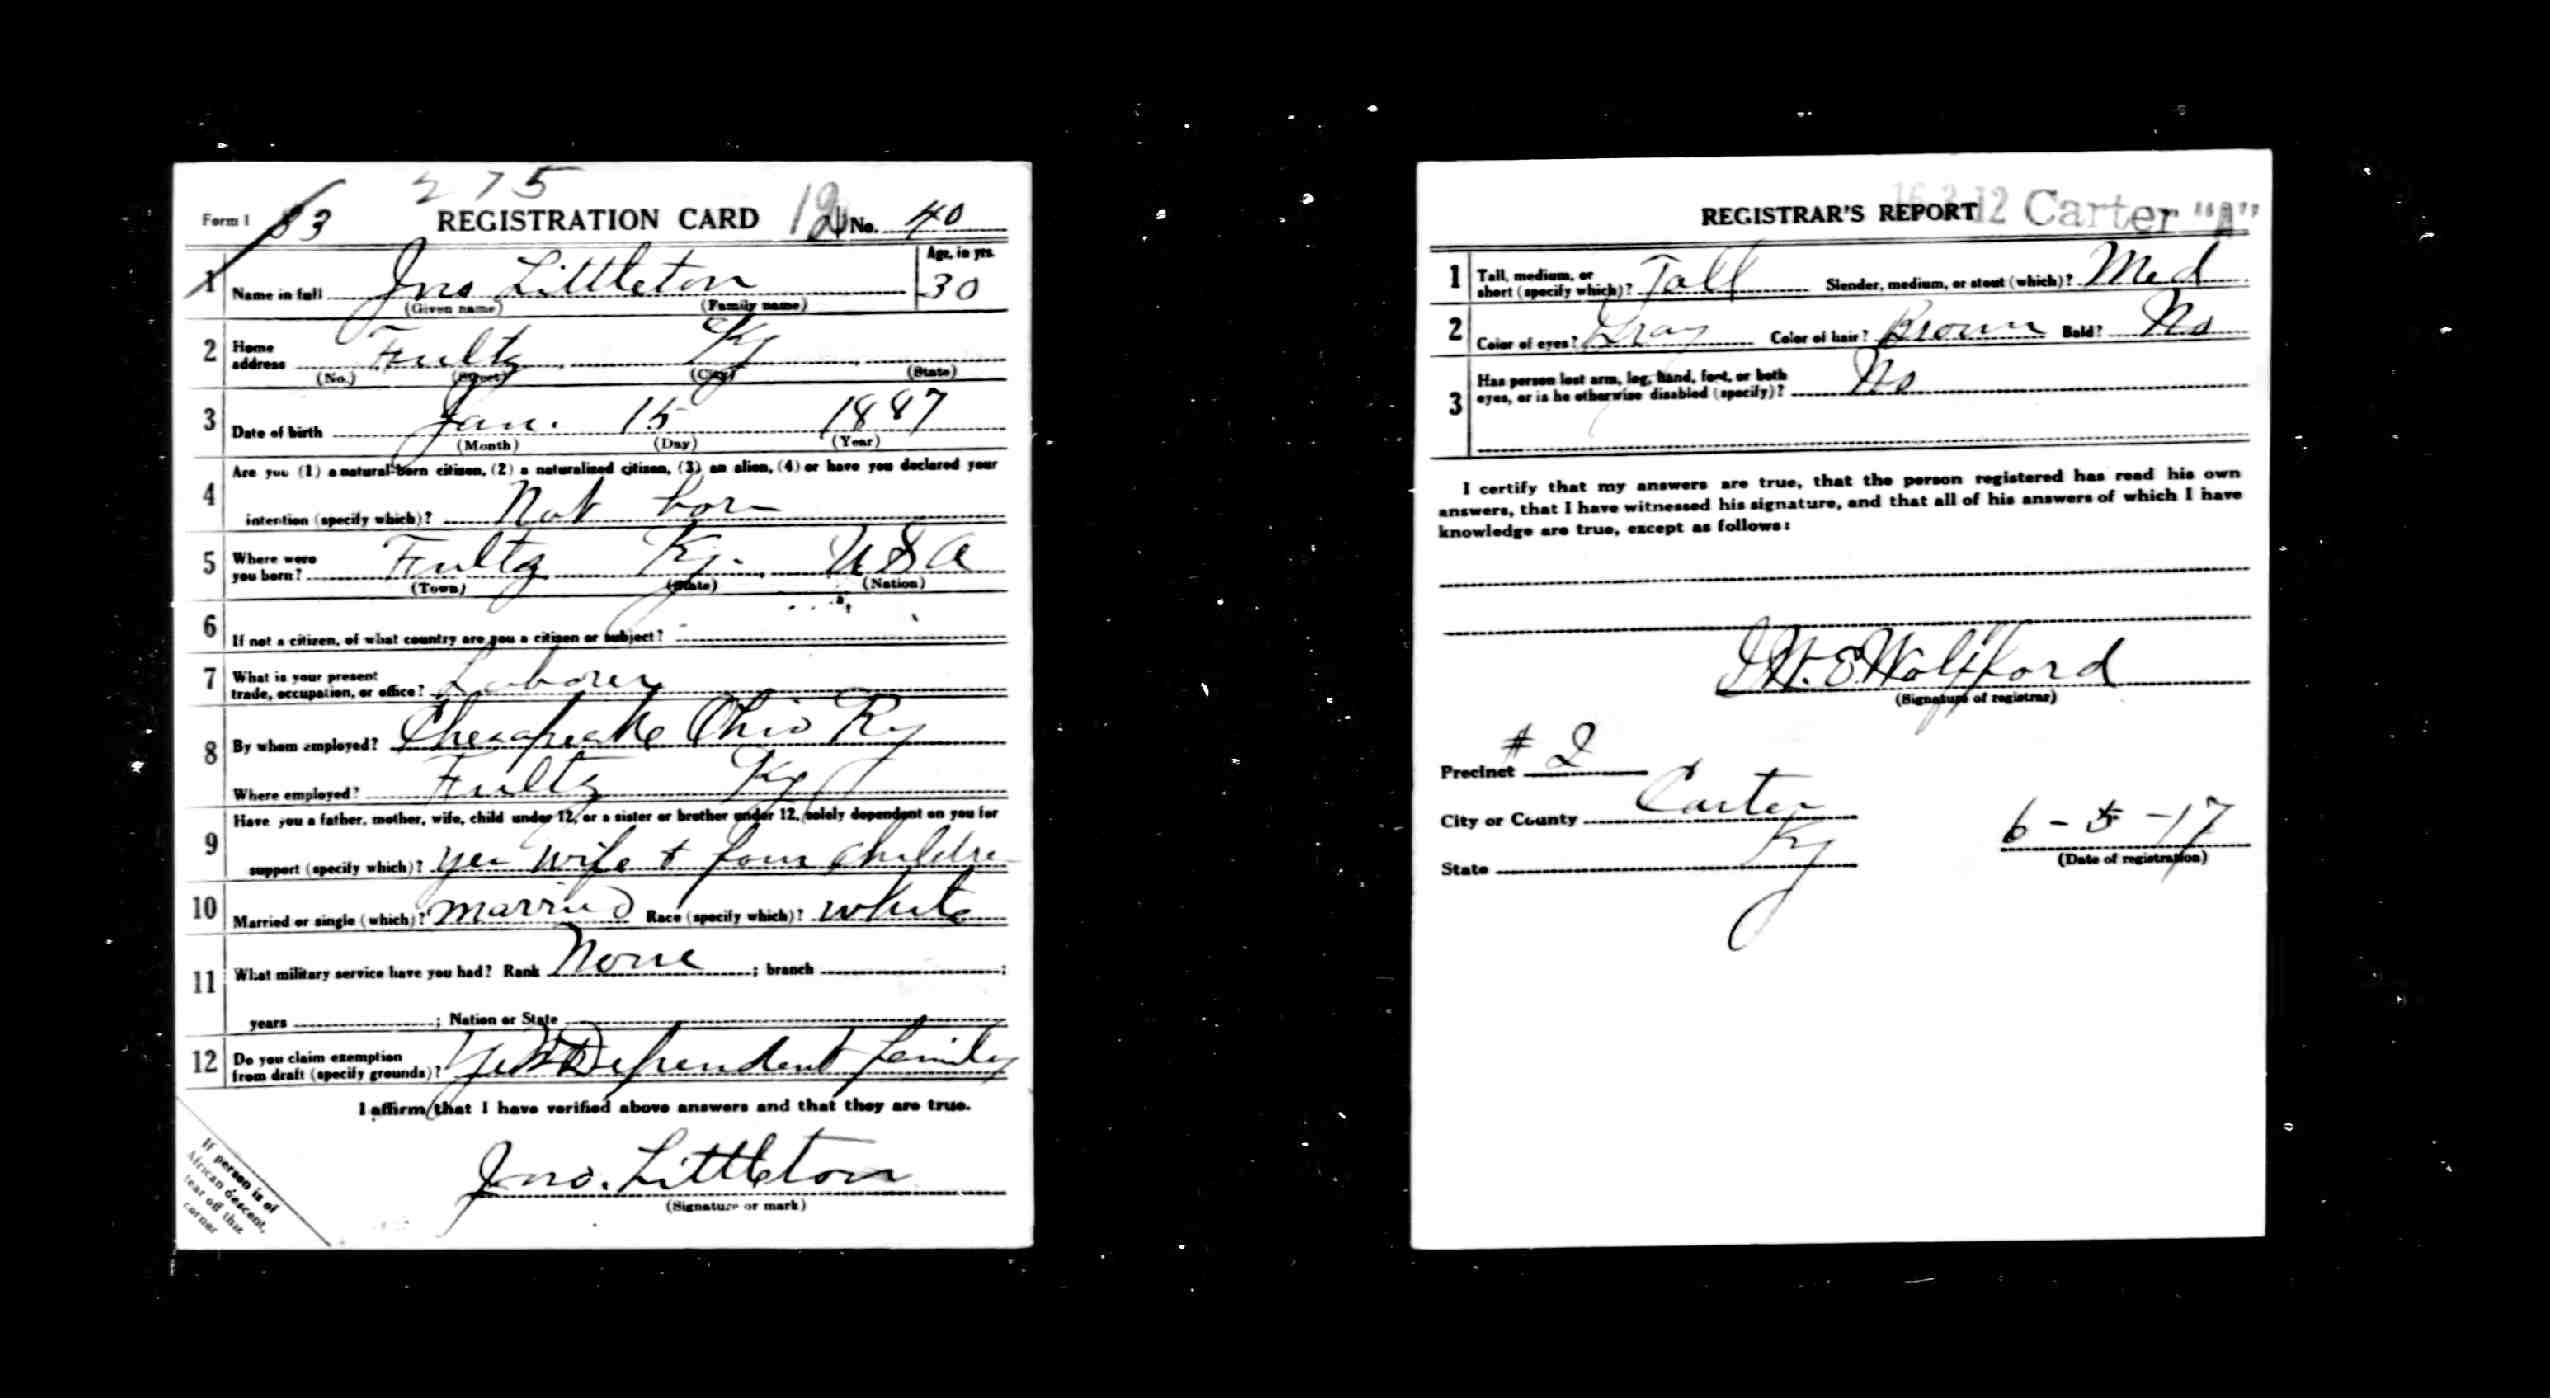 275
Form 1 83 REGISTRATION CARD No. 40
1 Name in full Jno Littleton Age, in yrs. 30
(Given name) (Family name)
2 Home address Fultz Ky
(No.) (Street) (City) (State)
3 Date of birth Jan. 15 1887
(Month) (Day) (Year)
4 Are you (1) a natural-born citizen, (2) a naturalized citizen, (3) an alien, (4) or have you declared your
intention (specify which)? Nat born
5 Where were you born? Fultz Ky. USA
(Town) (State) (Nation)
6 If not a citizen, of what country are you a citizen or subject?
7 What is your present trade, occupation, or office? Laborer
8 By whom employed? Chesapeake Ohio Ry
Where employed? Fultz Ky
9 Have you a father, mother, wife, child under 12, or a sister or brother under 12, solely dependent on you for
support (specify which)? yes wife + four childre
10 Married or single (which)? married Race (specify which)? white
11 What military service have you had? Rank None ; branch ;
years ; Nation or State
12 Do you claim exemption from draft (specify grounds)? Yes Dependent family
I affirm that I have verified above answers and that they are true.
Jno. Littleton
(Signature or mark)
If person is of
African descent,
tear off this
corner
REGISTRAR'S REPORT 16-2-12 Carter "A"
1 Tall, medium, or short (specify which)? Tall Slender, medium, or stout (which)? Med
2 Color of eyes? Gray Color of hair? Brown Bald? No
3 Has person lost arm, leg, hand, foot, or both
eyes, or is he otherwise disabled (specify)? No
I certify that my answers are true, that the person registered has read his own
answers, that I have witnessed his signature, and that all of his answers of which I have
knowledge are true, except as follows:
Wolfford
(Signature of registrar)
Precinct # 2
City or County Carter
State Ky
6-5-17
(Date of registration)